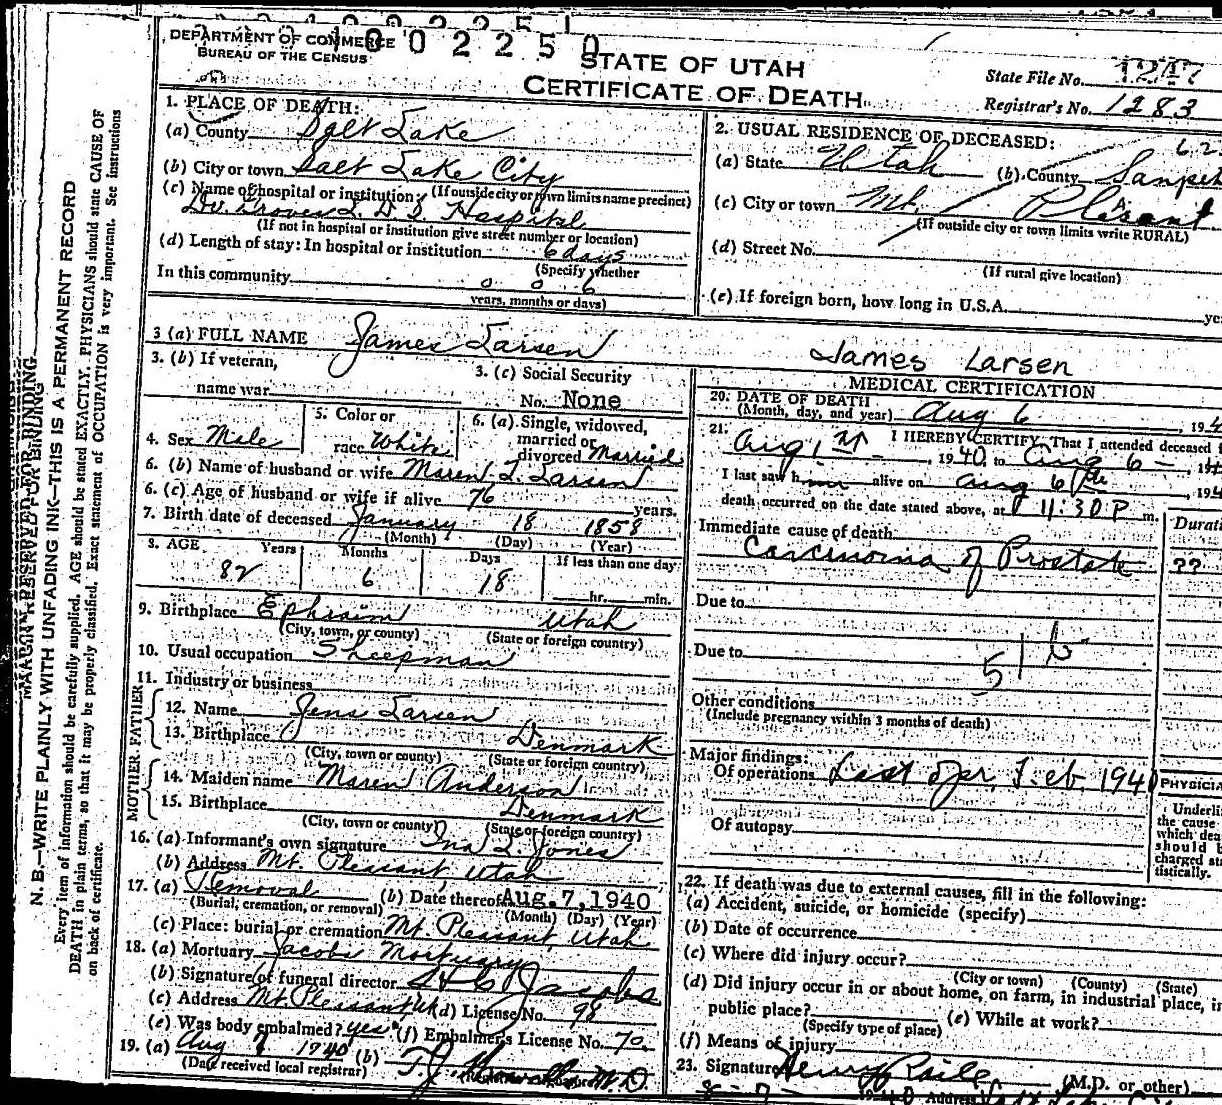 1002250
DEPARTMENT OF COMMERCE
BUREAU OF THE CENSUS
STATE OF UTAH
CERTIFICATE OF DEATH
State File No.
Registrar's No. 1283
1. PLACE OF DEATH:
(a) County Salt Lake
(b) City or town Salt Lake City
(c) Name of hospital or institution: (If outside city or town limits name precinct)
Dr. Groves L. D. S. Hospital
(If not in hospital or institution give street number or location)
(d) Length of stay: In hospital or institution 6 days
(Specify whether
In this community 0 0 6
years, months or days)
2. USUAL RESIDENCE OF DECEASED:
(a) State Utah (b) County Sanpet
(c) City or town Mt. Plesant
(If outside city or town limits write RURAL)
(d) Street No.
(If rural give location)
(e) If foreign born, how long in U.S.A.
3 (a) FULL NAME James Larsen
James Larsen
3. (b) If veteran,
name war
3. (c) Social Security
No. None
4. Sex Male
5. Color or
race White
6. (a) Single, widowed,
married or
divorced Married
6. (b) Name of husband or wife Maren L. Larsen
6. (c) Age of husband or wife if alive 76 years.
7. Birth date of deceased January 18 1858
(Month) (Day) (Year)
8. AGE Years Months Days If less than one day
82 6 18 hr. min.
9. Birthplace Ephraim Utah
(City, town, or county) (State or foreign country)
10. Usual occupation Sheepman
11. Industry or business
FATHER
12. Name Jens Larsen
13. Birthplace Denmark
(City, town or county) (State or foreign country)
MOTHER
14. Maiden name Maren Anderson
15. Birthplace Denmark
(City, town or county) (State or foreign country)
16. (a) Informant's own signature Ina L. Jones
(b) Address Mt. Pleasant, Utah
17. (a) Removal (b) Date thereof Aug. 7, 1940
(Burial, cremation, or removal) (Month) (Day) (Year)
(c) Place: burial or cremation Mt. Pleasant, Utah
18. (a) Mortuary Jacobs Mortuary
(b) Signature of funeral director Jacobs
(c) Address Mt Pleasant Ut (d) License No. 98
(e) Was body embalmed? yes (f) Embalmer's License No. 70
19. (a) Aug 7 1940 (b) M.D.
(Date received local registrar)
MEDICAL CERTIFICATION
20. DATE OF DEATH
(Month, day, and year) Aug 6, 194
21. I HEREBY CERTIFY, That I attended deceased
Aug 1st, 1940, to Aug 6, 194
I last saw him alive on Aug 6th, 194
death occurred on the date stated above, at 11:30 P m.
Immediate cause of death
Carcinoma of Prostate ??
Due to
Due to
51
Other conditions
(Include pregnancy within 3 months of death)
Major findings:
Of operations Last opr. Feb. 1940
Of autopsy
PHYSICIA
Underli
the cause
which dea
should b
charged sta
tistically.
22. If death was due to external causes, fill in the following:
(a) Accident, suicide, or homicide (specify)
(b) Date of occurrence
(c) Where did injury occur?
(City or town) (County) (State)
(d) Did injury occur in or about home, on farm, in industrial place, in
public place? (e) While at work?
(Specify type of place)
(f) Means of injury
23. Signature Henry Raile (M.D. or other)
8-7- 1940 Address
MARGIN RESERVED FOR BINDING
N. B.—WRITE PLAINLY WITH UNFADING INK—THIS IS A PERMANENT RECORD
Every item of information should be carefully supplied. AGE should be stated EXACTLY. PHYSICIANS should state CAUSE OF
DEATH in plain terms, so that it may be properly classified. Exact statement of OCCUPATION is very important. See instructions
on back of certificate.